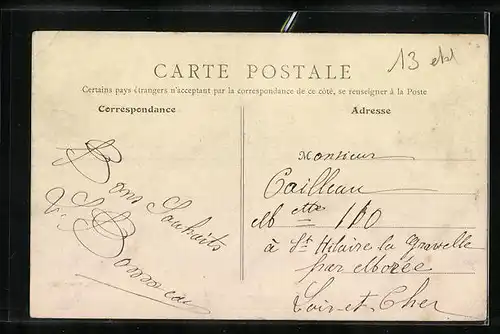 13
CARTE POSTALE
Certains pays étrangers n'acceptant par la correspondance de ce côté, se renseigner à la Poste
Correspondance
Adresse
Bons Souhaits
Monsieur
Cailleau
à St Hilaire la Gravelle
par Morée
Loir-et-Cher